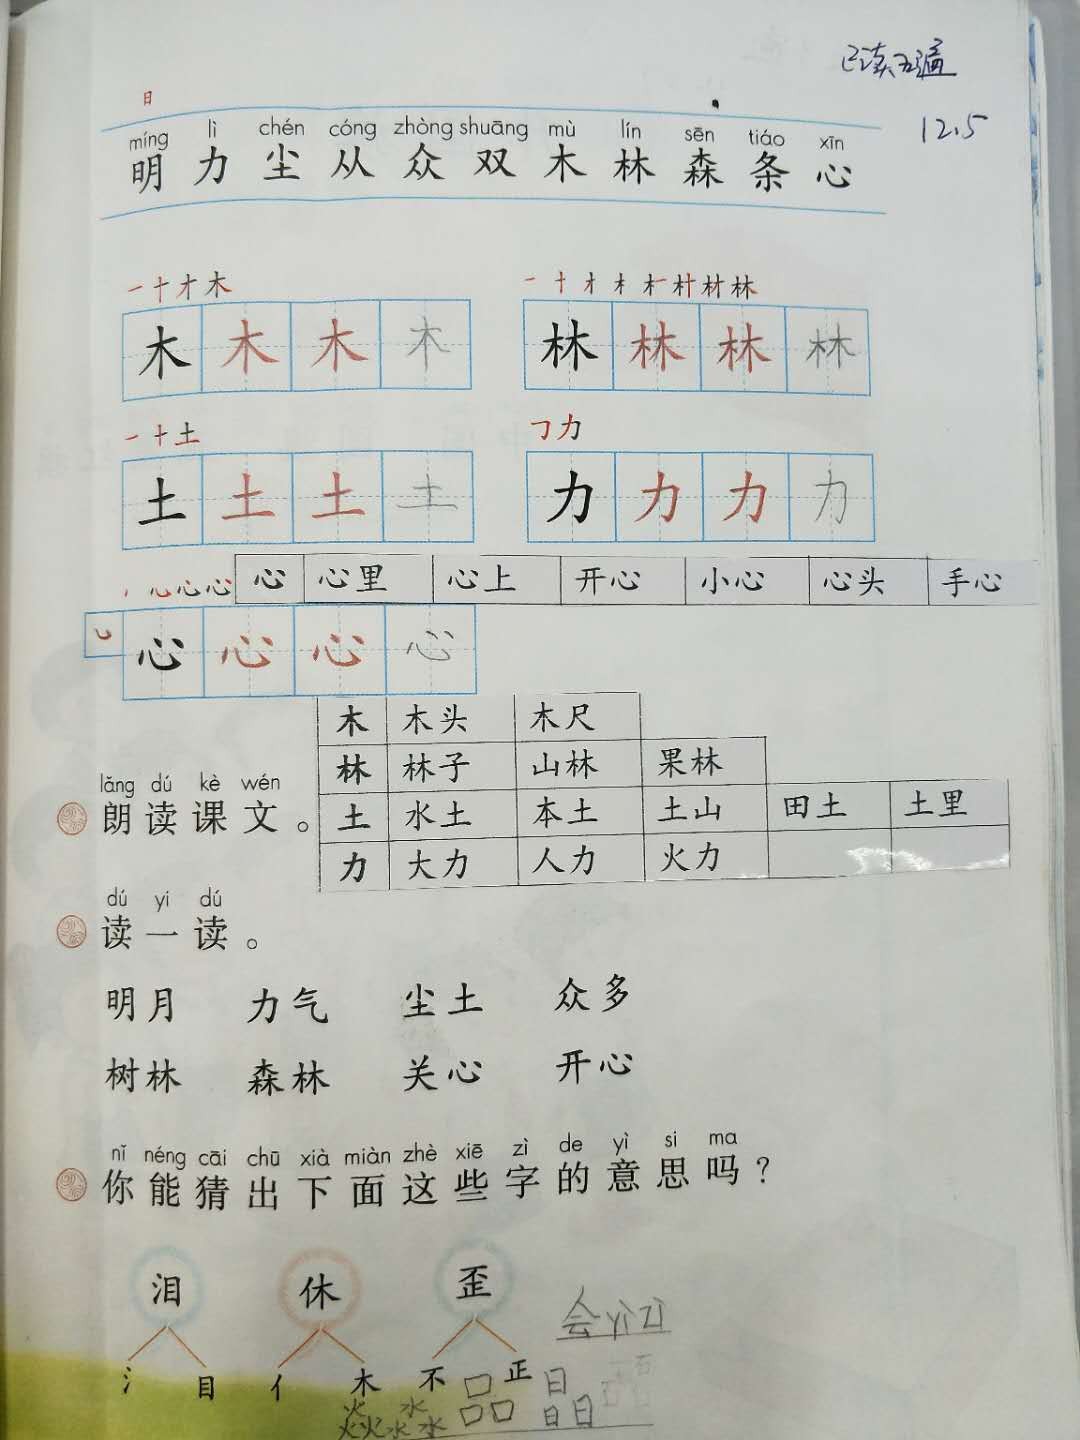 已读五遍
12.5
日
míng lì chén cóng zhòng shuāng mù lín sēn tiáo xīn
明 力 尘 从 众 双 木 林 森 条 心
木 木 木 木
林 林 林 林
土 土 土 土
力 力 力 力
心 心里 心上 开心 小心 心头 手心
心 心 心 心
木 木头 木尺
林 林子 山林 果林
土 水土 本土 土山 田土 土里
力 大力 人力 火力
lǎng dú kè wén
朗读课文。
dú yi dú
读一读。
明月 力气 尘土 众多
树林 森林 关心 开心
nǐ néng cāi chū xià miàn zhè xiē zì de yì si ma
你能猜出下面这些字的意思吗？
泪 休 歪
氵 目 亻 木 不 正
焱 淼 品 晶